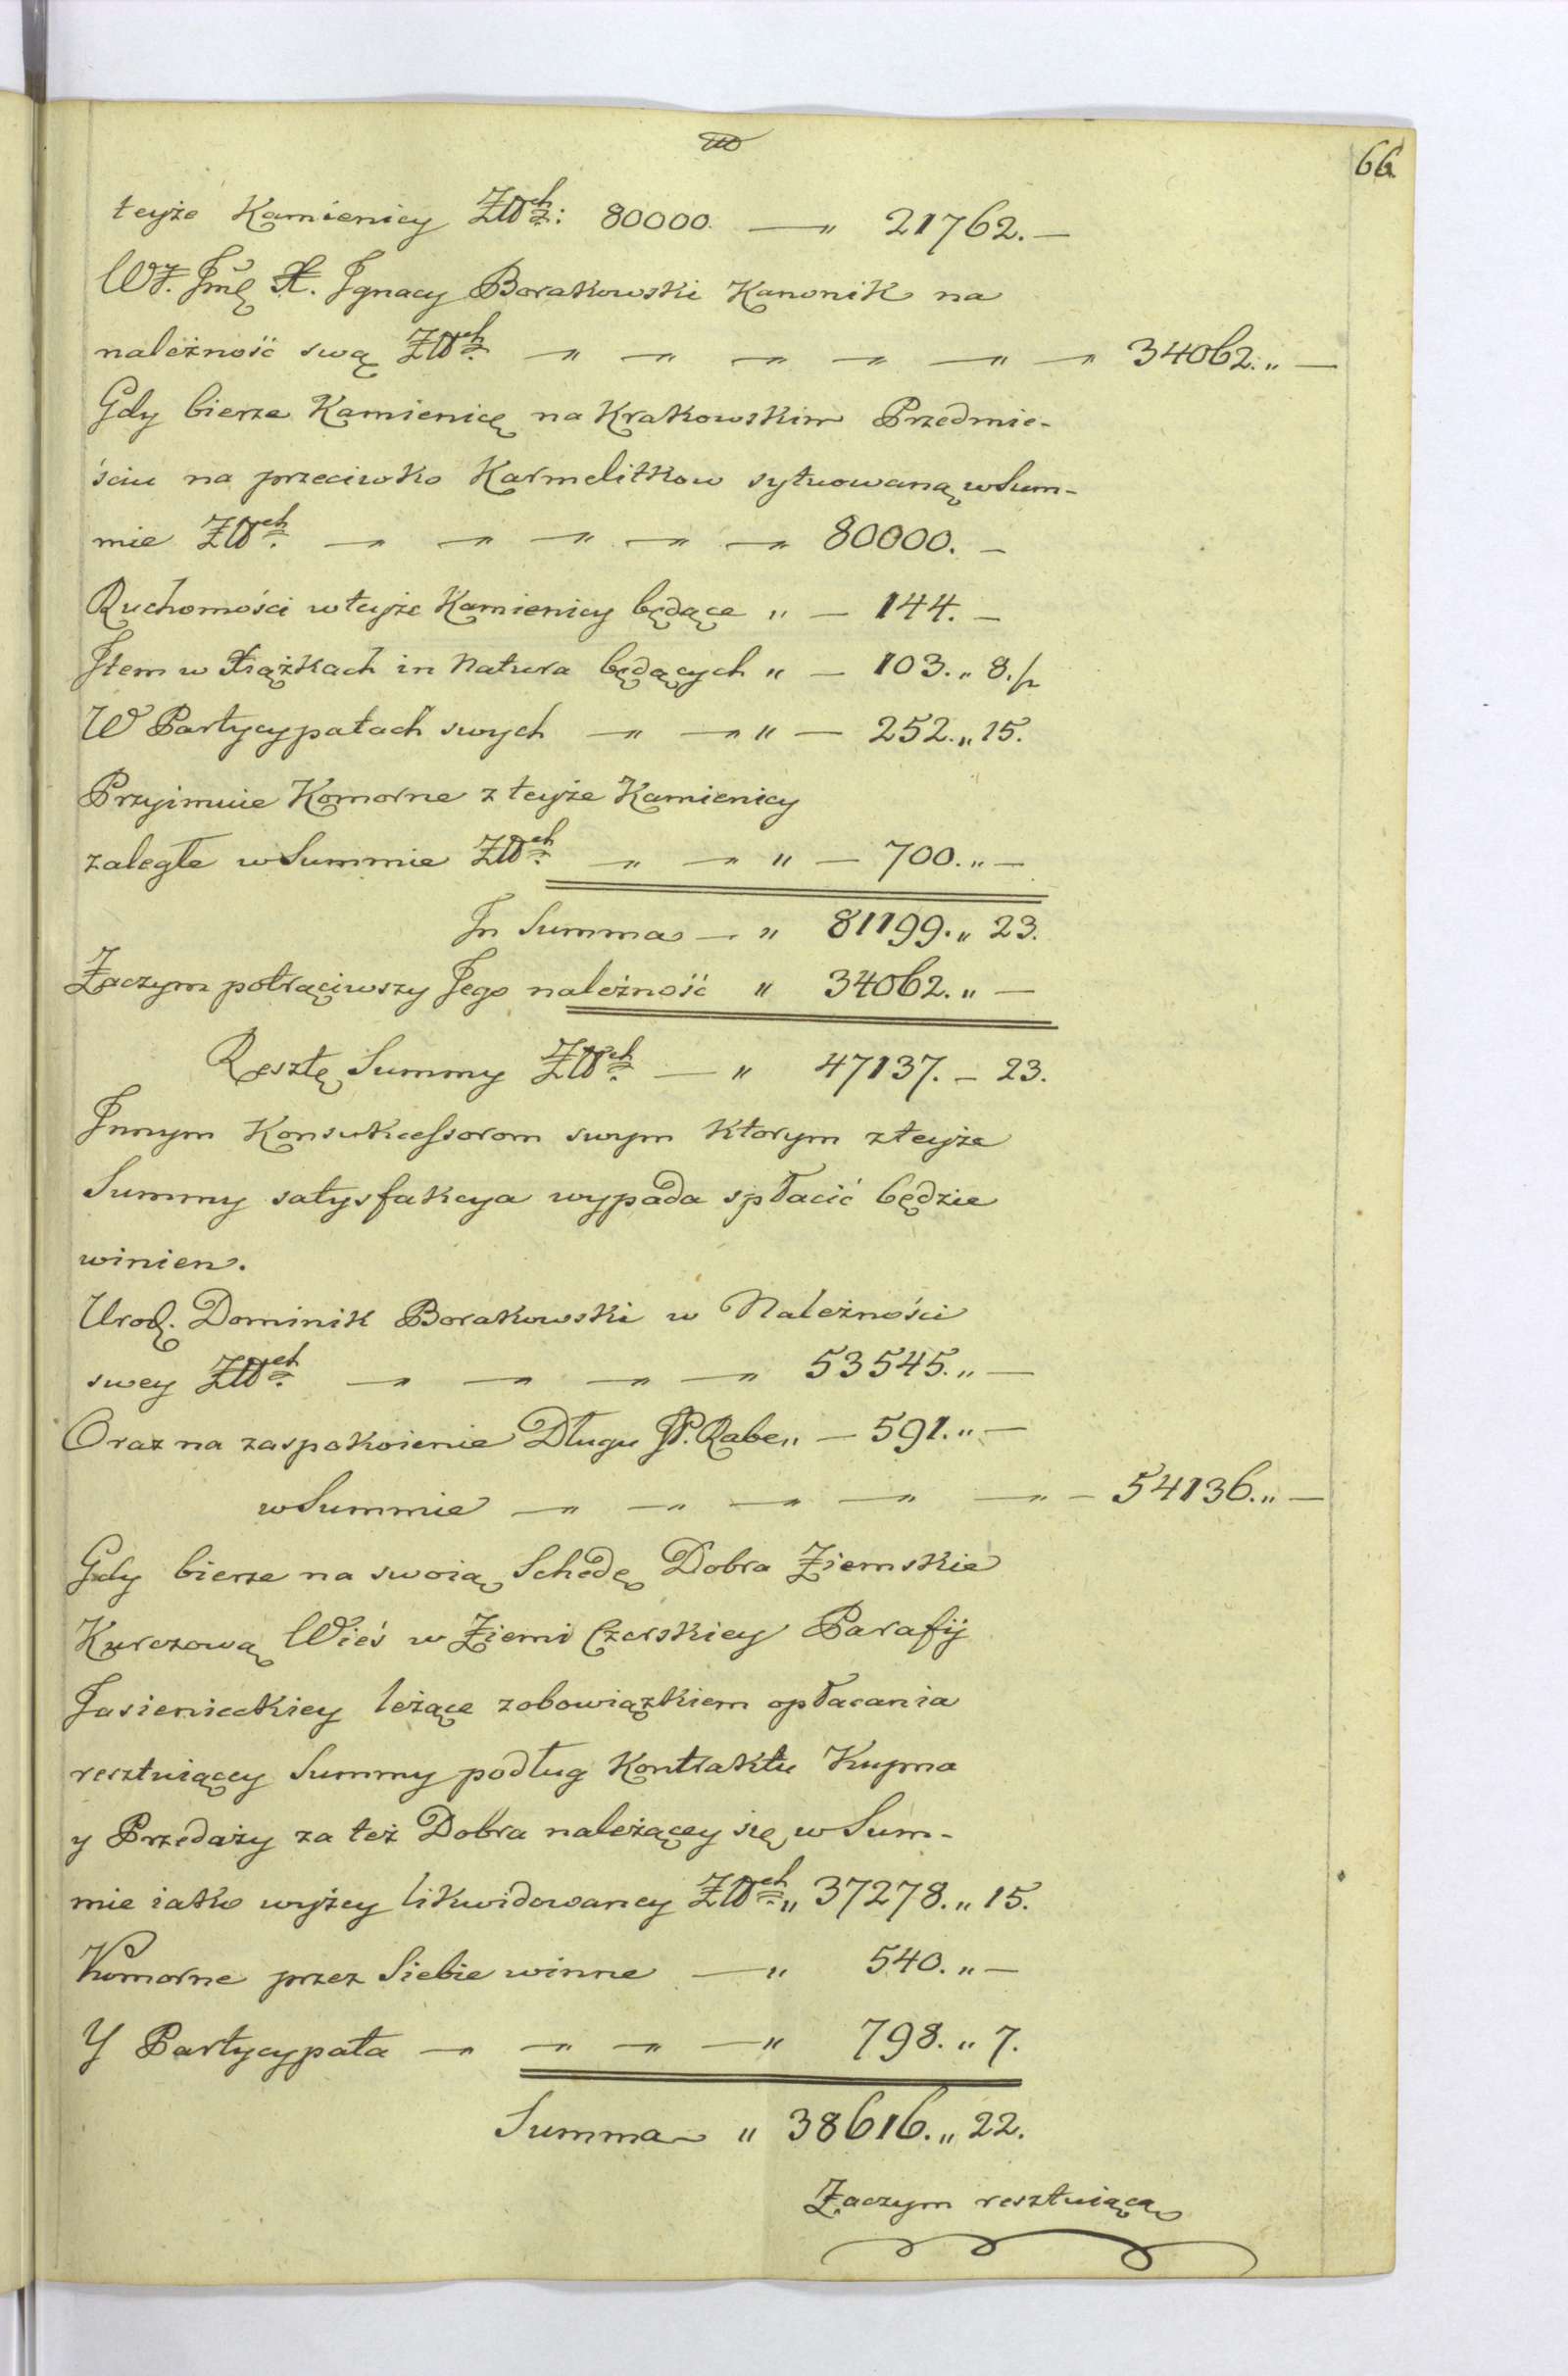 66.
teyże Kamienicy Złłch: 80000. — „ 21762. —
WJ. Jmć X. Ignacy Borakowski Kanonik na
należność swą Złłch. — „ — „ — „ — „ — „ — „ 34062. „ —
Gdy bierze Kamienicę na Krakowskim Przedmie-
ściu na przeciwko Karmelitkow sytuowaną w Sum-
mie Złłch. — „ — „ — „ — „ — „ 80000. —
Ruchomości w teyże Kamienicy będące „ — 144. —
Item w Xiążkach in Natura będących „ — 103. „ 8.
W Partycypatach swych — „ — „ „ — 252. „ 15.
Przyimuie Komorne z teyże Kamienicy
zaległe w Summie Złłch. — „ — „ „ — 700. „ —
In Summa — „ 81199. „ 23.
Zaczym potrąciwszy Jego należność „ 34062. „ —
Resztę Summy Złłch. — „ 47137. — 23.
Innym Konsukcessorom swym ktorym z teyże
Summy satysfakcya wypada spłacić będzie
winien.
Urod. Dominik Borakowski w Należności
swey Złłch. — „ — „ — „ — „ 53545. „ —
Oraz na zaspokoienie Długu JP. Rabe „ — 591. „ —
w Summie — „ — „ — „ — „ — „ — 54136. „ —
Gdy bierze na swoią Schedę Dobra Ziemskie
Kurczową Wieś w Ziemi Czerskiey Parafij
Jasienieckiey leżące z obowiązkiem opłacania
resztuiącey Summy podług Kontraktu Kupna
y Przedaży za też Dobra należącey się w Sum-
mie iako wyżey likwidowaney Złłch. „ 37278. „ 15.
Komorne przez Siebie winne — „ 540. „ —
Y Partycypata — „ — „ — „ — „ 798. „ 7.
Summa „ 38616. „ 22.
Zaczym resztuiącą